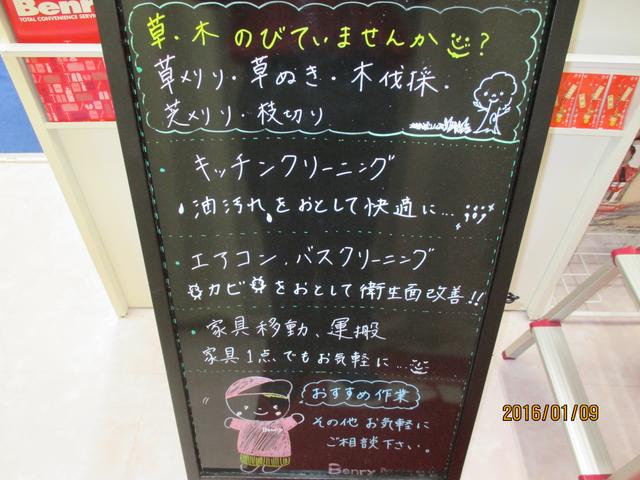 Benry
TOTAL CONVENIENCE SERV
草・木 のびていませんか ?
草メリリ・草ぬき・木伐採・
芝メリリ・枝切り
・キッチンクリーニング
油汚れをおとして快適に…
・エアコン、バスクリーニング
カビをおとして衛生面改善!!
・家具移動、運搬
家具1点でもお気軽に…
おすすめ作業
その他 お気軽に
ご相談下さい。
Benry
2016/01/09